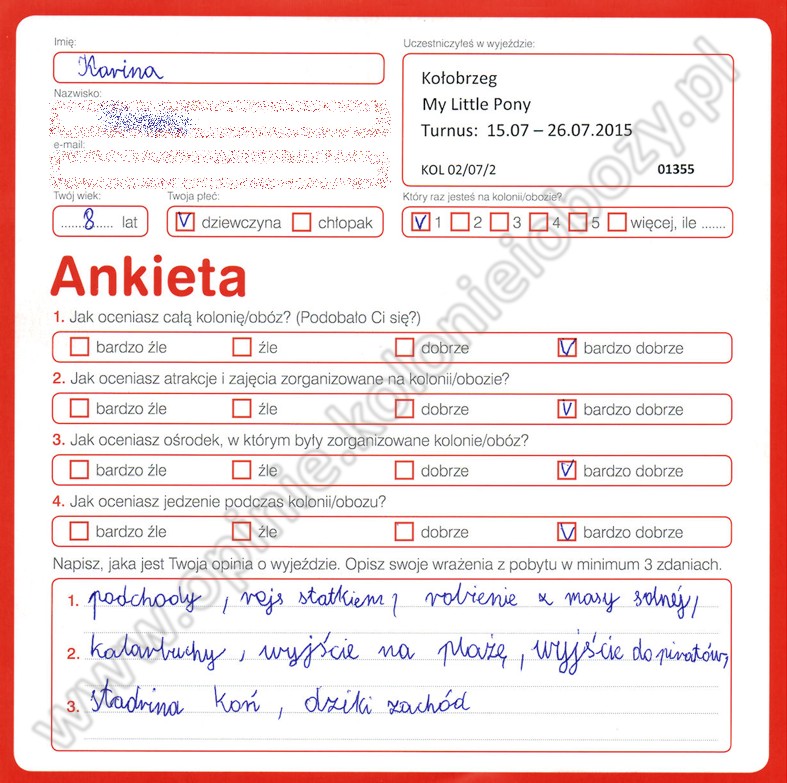 Imię:
Karina
Nazwisko:
e-mail:
Twój wiek:
8 lat
Twoja płeć:
dziewczyna chłopak
Uczestniczyłeś w wyjeździe:
Kołobrzeg
My Little Pony
Turnus: 15.07 – 26.07.2015
KOL 02/07/2 01355
Który raz jesteś na kolonii/obozie?
1 2 3 4 5 więcej, ile .......
Ankieta
1. Jak oceniasz całą kolonię/obóz? (Podobało Ci się?)
bardzo źle źle dobrze bardzo dobrze
2. Jak oceniasz atrakcje i zajęcia zorganizowane na kolonii/obozie?
bardzo źle źle dobrze bardzo dobrze
3. Jak oceniasz ośrodek, w którym były zorganizowane kolonie/obóz?
bardzo źle źle dobrze bardzo dobrze
4. Jak oceniasz jedzenie podczas kolonii/obozu?
bardzo źle źle dobrze bardzo dobrze
Napisz, jaka jest Twoja opinia o wyjeździe. Opisz swoje wrażenia z pobytu w minimum 3 zdaniach.
1. podchody, rejs statkiem, robienie z masy solnej,
2. kalambuchy, wyjście na plażę, wyjście do piratów,
3. stadnina koń, dziki zachód
www.opinie.kolonieiobozy.pl